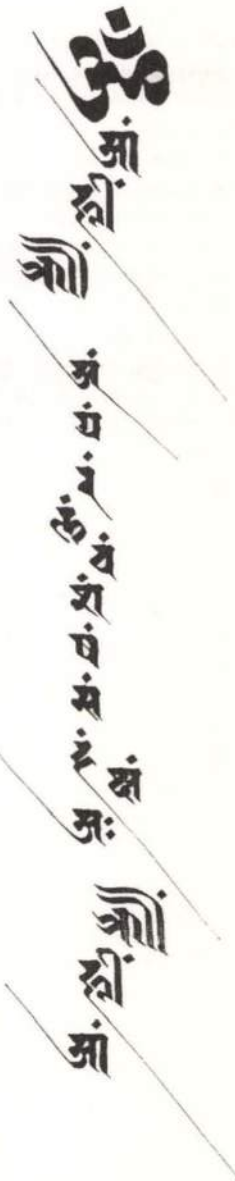 ॐ
आं
ह्रीं
क्रौं
अं
यं
रं
लं
वं
शं
षं
सं
हं
क्षं
अः
क्रौं
ह्रीं
आं